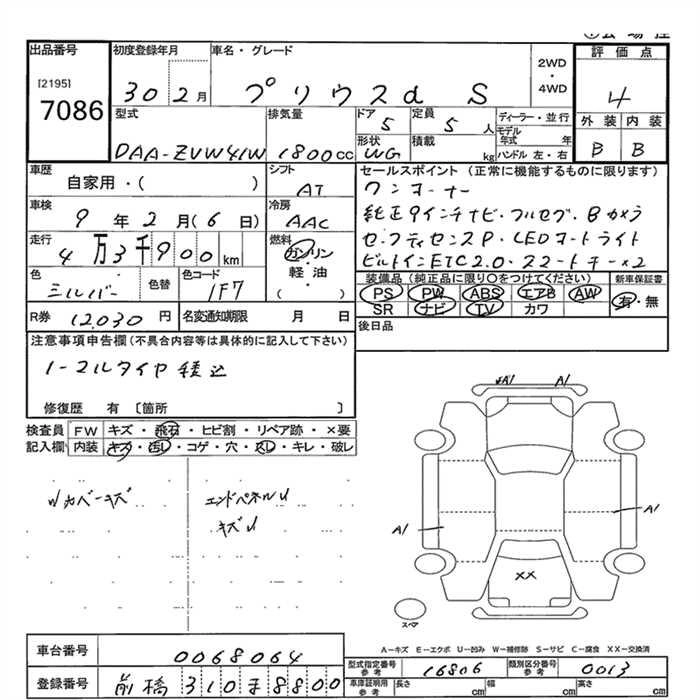 出品番号
[2195]
7086
初度登録年月
30 2月
車名・グレード
プリウスα S
2WD
・
4WD
評価点
4
外装 内装
B B
型式
DAA-ZVW41W
排気量
1800cc
ドア
5
定員
5人
ディーラー・並行
モデル
年式 年
形状
WG
積載
kg
ハンドル 左・右
車歴
自家用・( )
シフト
AT
セールスポイント(正常に機能するものに限ります)
ワンオーナー
純正9インチナビ・フルセグ・Bカメラ
セーフティセンスP・LEDヘッドライト
ビルトインETC2.0・スマートキー×2
車検
9年2月(6日)
冷房
AAC
走行
4万3千900km
燃料
ガソリン
・
軽油
( )
色
シルバー
色替
色コード
1F7
装備品(純正品に限り○をつけてください)
PS PW ABS エアB AW
SR ナビ TV カワ
新車保証書
有・無
R券 12,030円
名変通知期限 月 日
後日品
注意事項申告欄(不具合内容等は具体的に記入して下さい)
ノーマルタイヤ積込
修復歴 有 〔箇所 〕
検査員
記入欄
FW キズ・飛石・ヒビ割・リペア跡・×要
内装 キズ・汚し・コゲ・穴・スレ・キレ・破レ
リカバーキズ
エンドパネルU
キズU
A1
A1
A1
××
スペア
A-キズ E-エクボ U-凹み W-補修跡 S-サビ C-腐食 XX-交換済
車台番号
0068064
登録番号
前橋 310ま8800
型式指定番号
参考
16806
類別区分番号
参考
0013
車庫証明用
参考
長さ cm 幅 cm 高さ cm